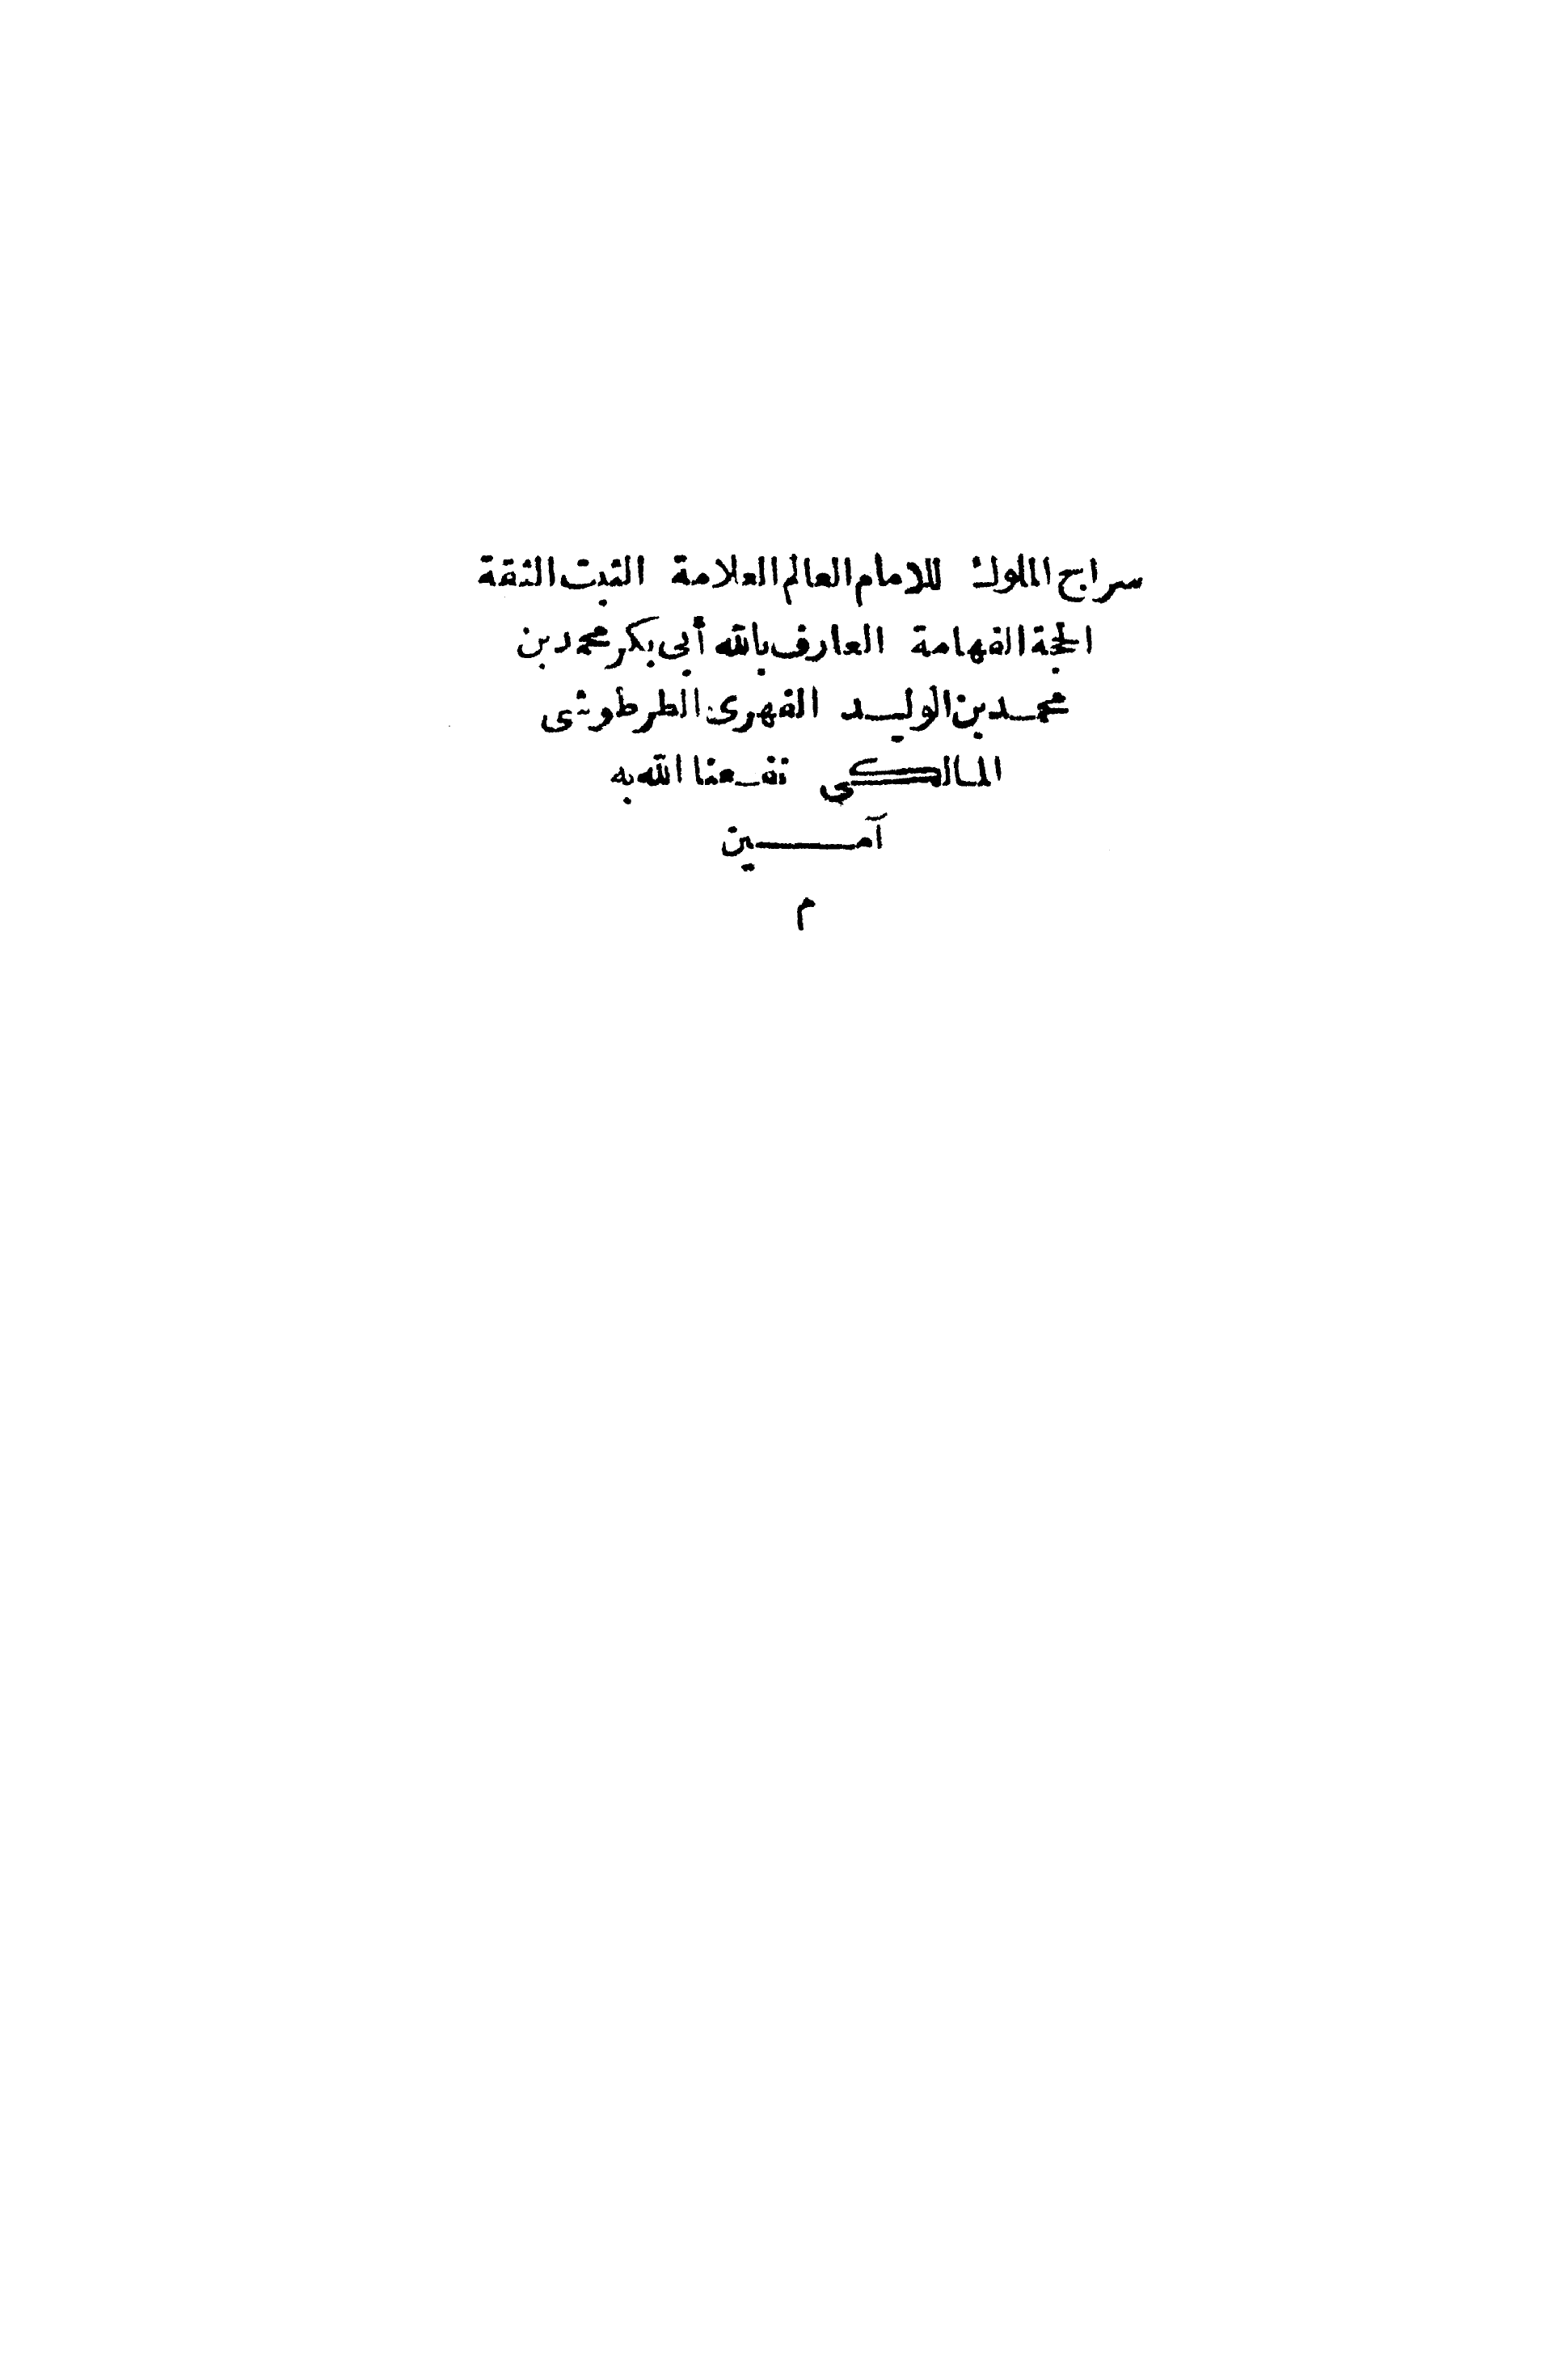 سراج الملوك للامام العالم العلامة الثبت الثقة
الحجة الفهامة العارف بالله أبي بكر محمد بن
محمد بن الوليد الفهرى الطرطوشى
المالكي نفعنا الله به
آمين
م